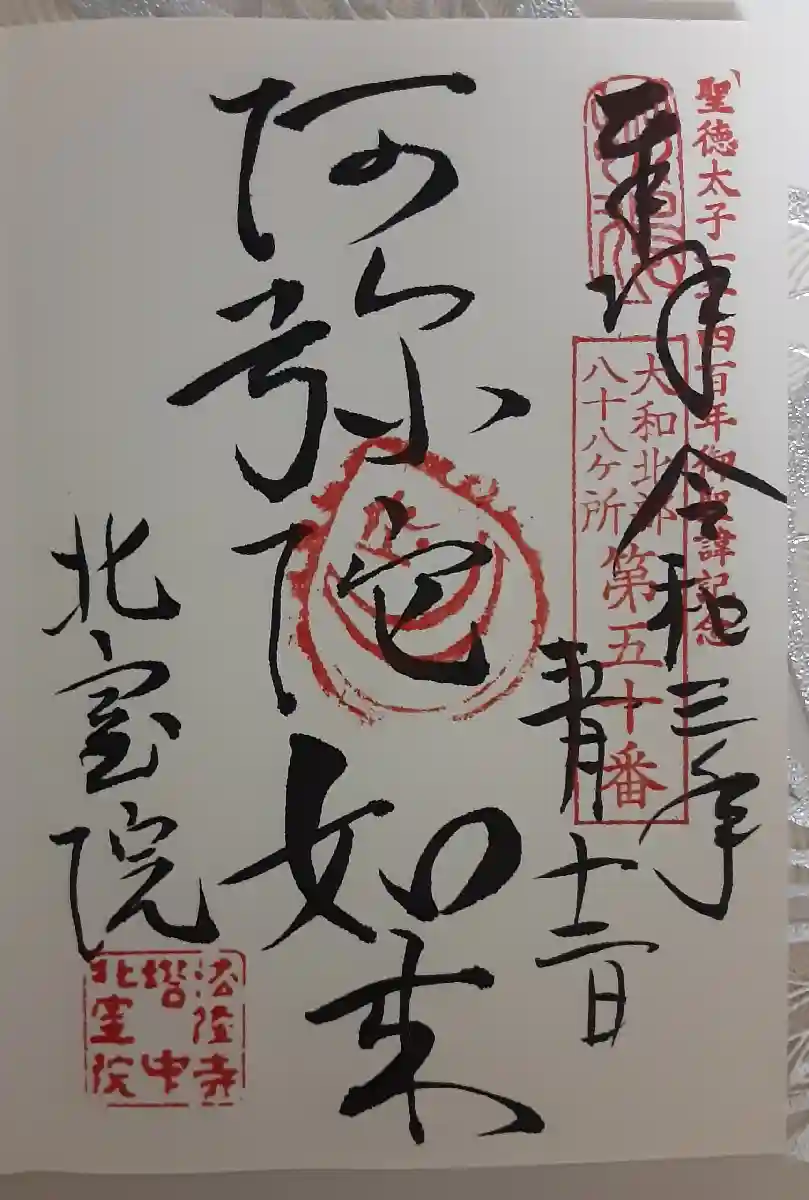 聖徳太子一千四百年御聖諱記念
奉拝 令和三年
十二日
大和北部
八十八ヶ所
第五十番
阿弥陀如来
北室院
法隆寺
塔中
北室院